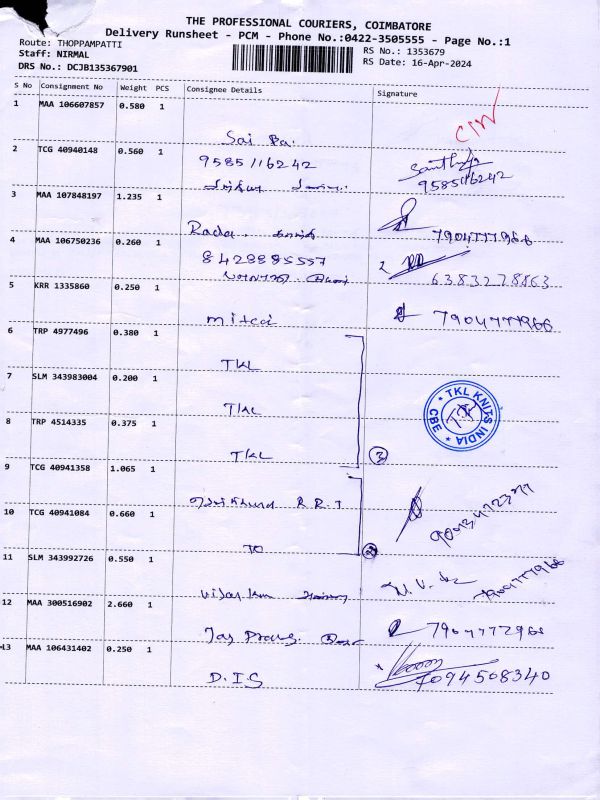 THE PROFESSIONAL COURIERS, COIMBATORE
Delivery Runsheet - PCM - Phone No.:0422-3505555 - Page No.:1
Route: THOPPAMPATTI
Staff: NIRMAL
DRS No.: DCJB135367901
RS No.: 1353679
RS Date: 16-Apr-2024
S No Consignment No Weight PCS Consignee Details Signature
1 MAA 106607857 0.580 1
Sai Ba.
2 TCG 40940148 0.560 1
9585116242
9585116242
3 MAA 107848197 1.235 1
Rada.
7904777966
4 MAA 106750236 0.260 1
8428885557
6383278863
5 KRR 1335860 0.250 1
mitcci 7904777966
6 TRP 4977496 0.380 1
TKL
7 SLM 343983004 0.200 1
TKL
TKL KNITS INDIA
CBE
8 TRP 4514335 0.375 1
TKL
3
9 TCG 40941358 1.065 1
R.R.J
10 TCG 40941084 0.660 1
TO
11 SLM 343992726 0.550 1
7904777966
12 MAA 300516902 2.660 1
7904772966
13 MAA 106431402 0.250 1
D.I.S
7094508340